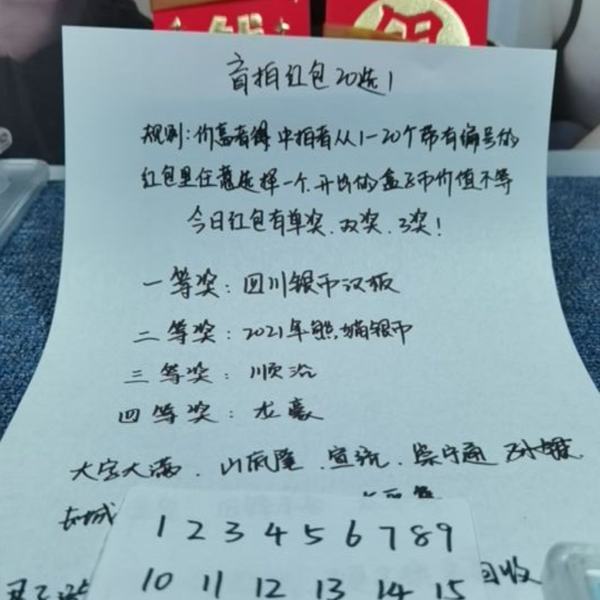 盲拍红包20选1
规则:价高者得 中拍者从1-20个带有编号的
红包里任意选择一个,开出的盒子币价值不等
今日红包有单奖、双奖、3奖!
一等奖:四川银币汉版
二等奖:2021年熊猫银币
三等奖:顺治
四等奖:龙豪
大字大满、山凤隆、宣统、崇宁通
长城
1 2 3 4 5 6 7 8 9
10 11 12 13 14 15
回收